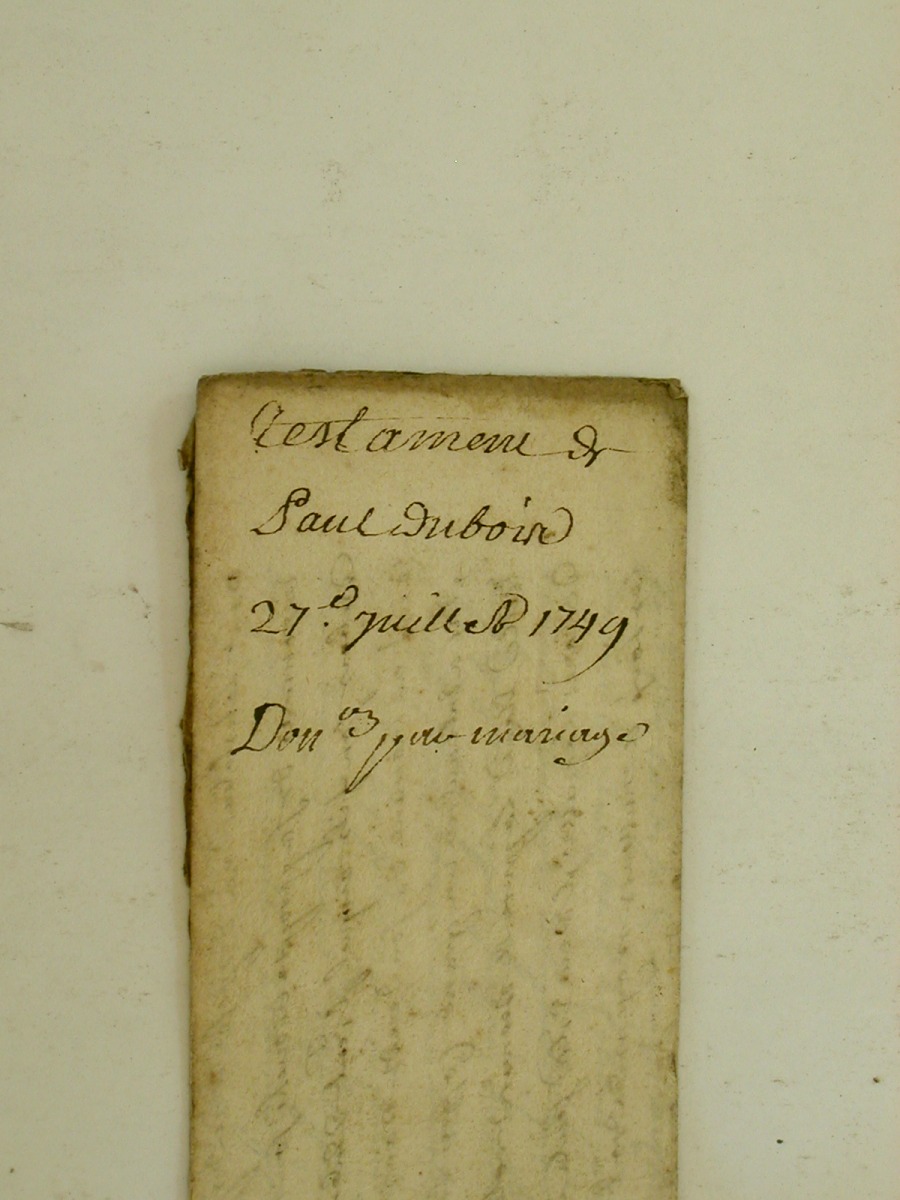 Testament de
Paul Dubois
27.e Juillet 1749
Don.on par mariage